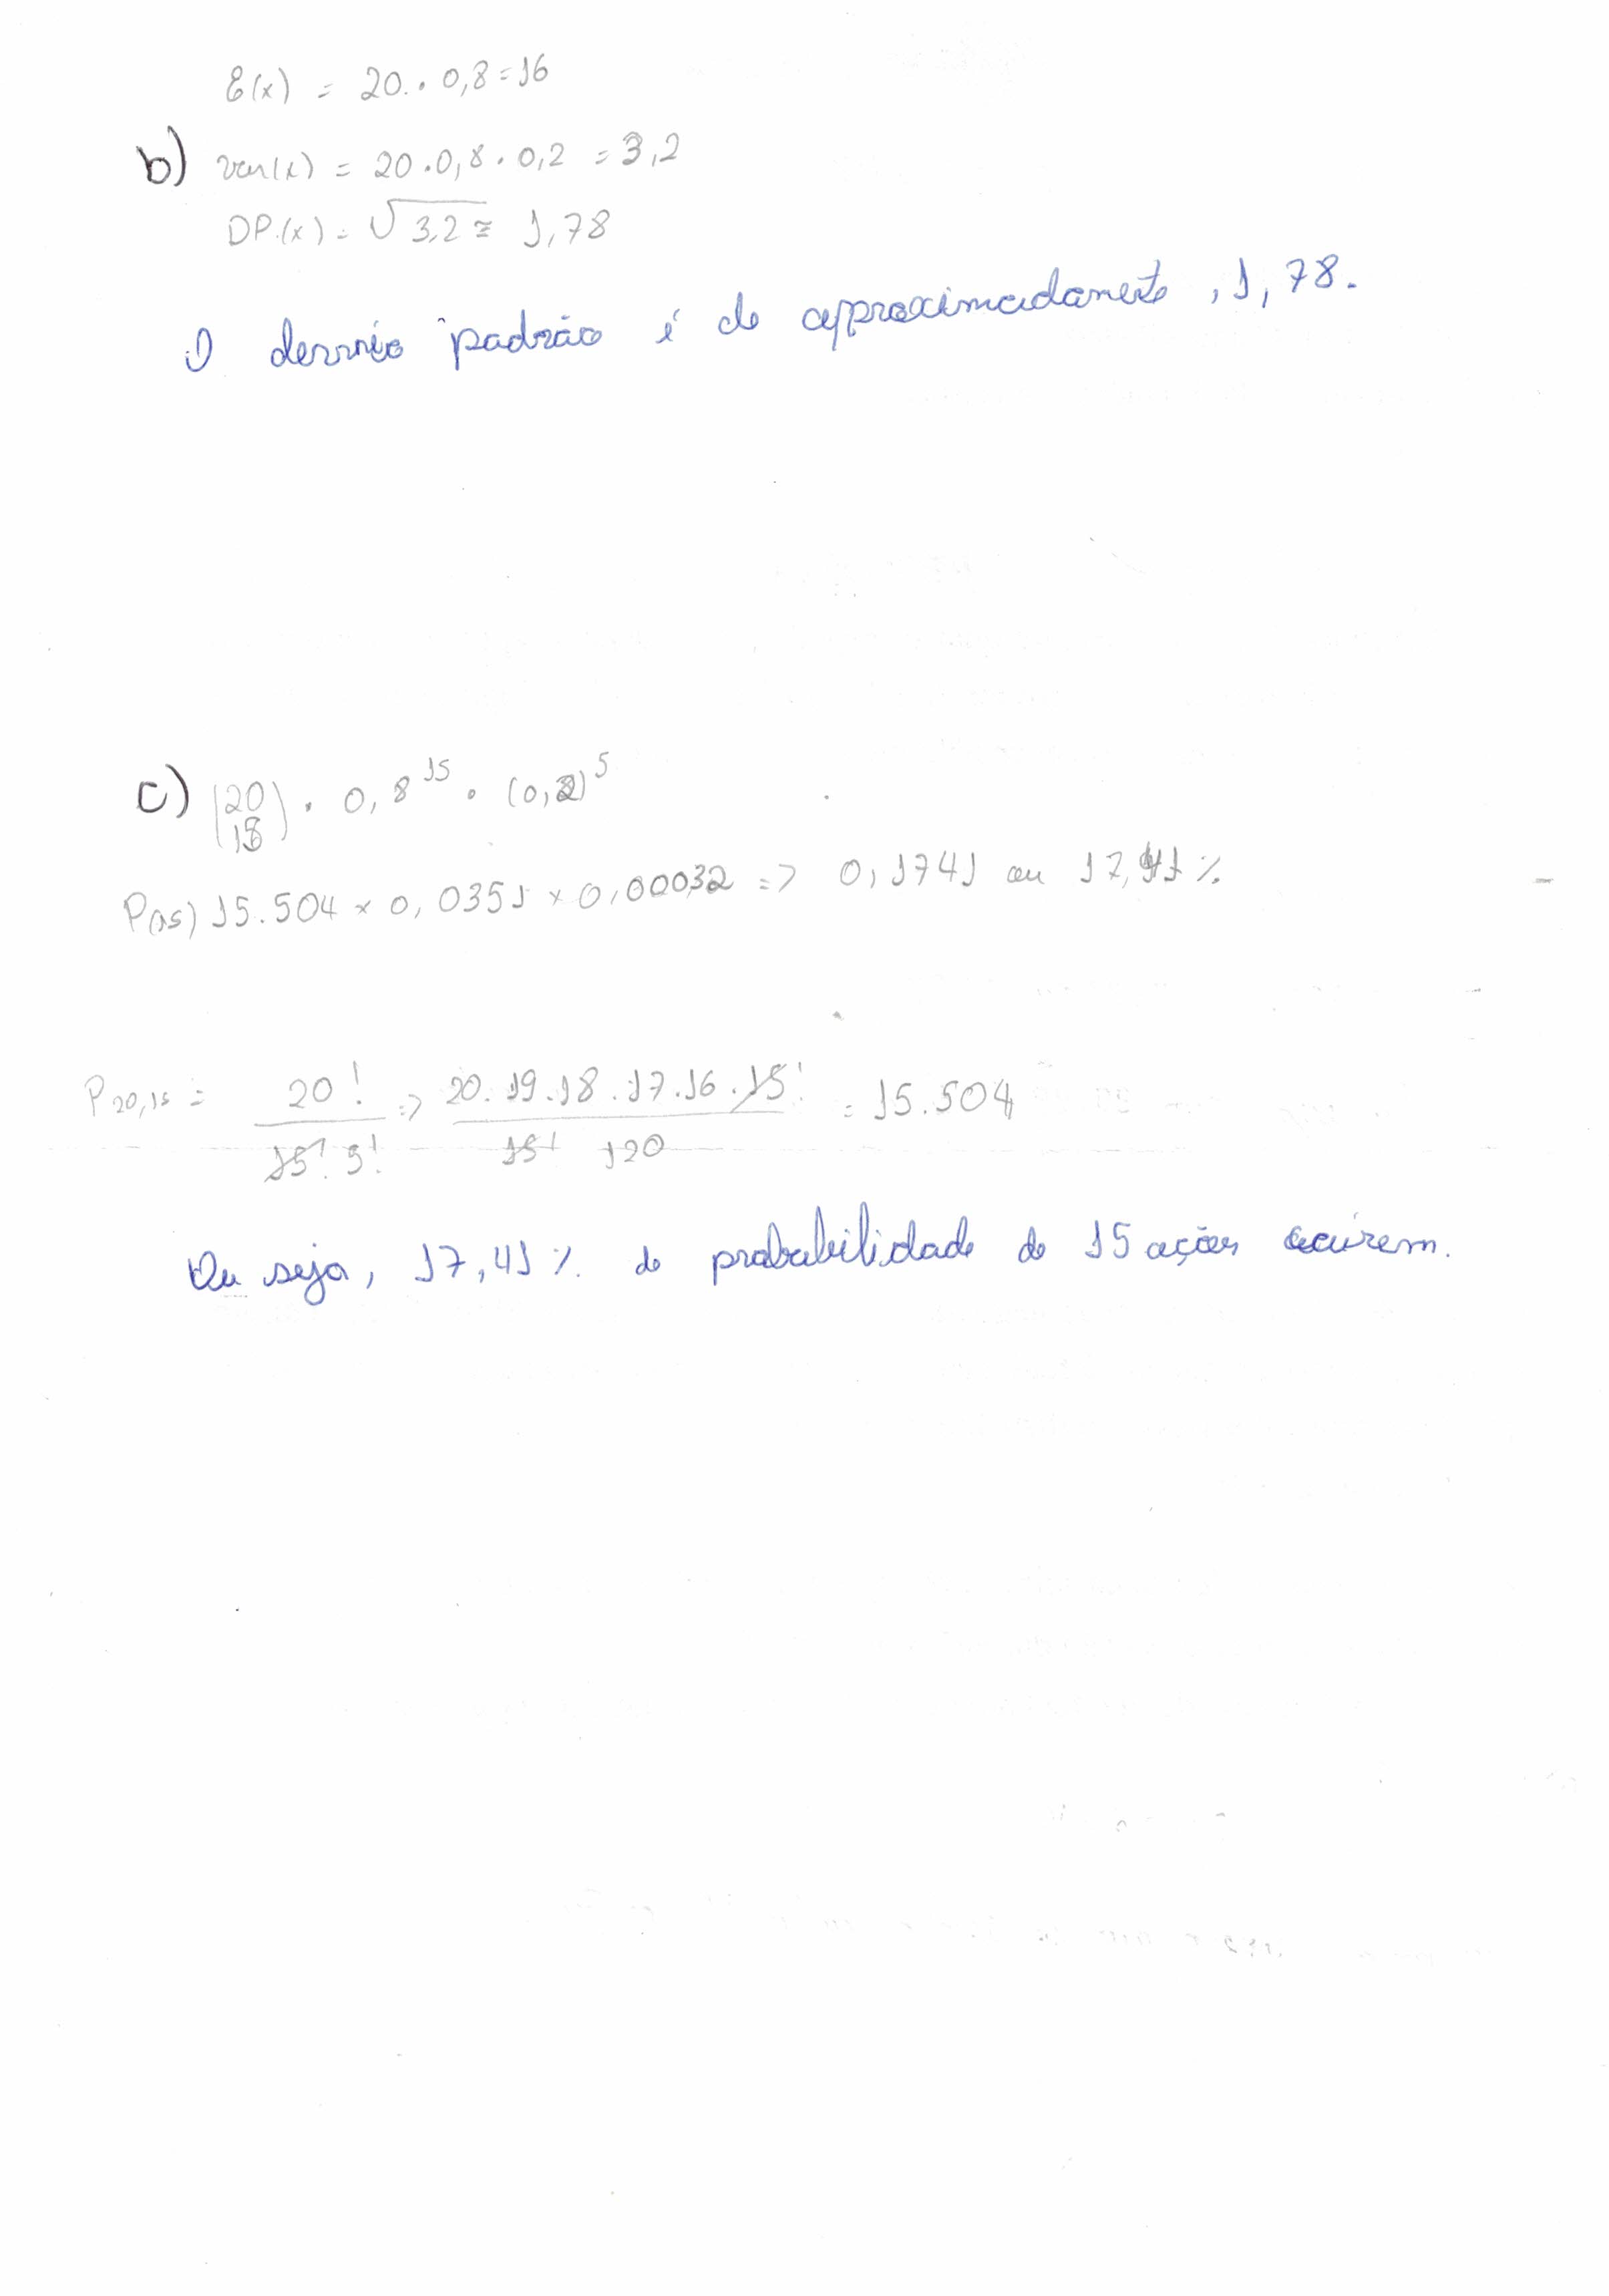 E(x) = 20 . 0,8 = 16
b) var(x) = 20 . 0,8 . 0,2 = 3,2
DP.(x) = √3,2 ≅ 1,78
O desvio padrão é de approximadamente , 1, 78.
c) (20 15) . 0,8^15 . (0,2)^5
P(15) 15.504 x 0,0351 x 0,00032 => 0,1741 ou 17,41 %
P20,15 = 20! / 15! 5! => 20.19.18.17.16.15! / 15! 120 = 15.504
Ou seja, 17,41 % de probabilidade de 15 ações